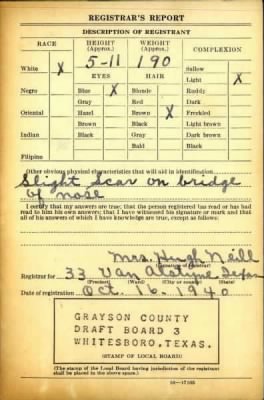 REGISTRAR'S REPORT
DESCRIPTION OF REGISTRANT
RACE HEIGHT (Approx.) WEIGHT (Approx.) COMPLEXION
5-11 190
White X Sallow
EYES HAIR Light X
Negro Blue X Blonde Ruddy
Gray Red Dark
Oriental Hazel Brown X Freckled
Brown Black Light brown
Indian Black Gray Dark brown
Bald Black
Filipino
Other obvious physical characteristics that will aid in identification
Slight Scar on bridge
of nose
I certify that my answers are true; that the person registered has read or has had
read to him his own answers; that I have witnessed his signature or mark and that
all of his answers of which I have knowledge are true, except as follows:
Mrs. Hugh Neill
(Signature of registrar)
Registrar for 33 Van Alstyne Texas
(Precinct) (Ward) (City or county) (State)
Date of registration Oct. 16, 1940
GRAYSON COUNTY
DRAFT BOARD 3
WHITESBORO, TEXAS.
(STAMP OF LOCAL BOARD)
(The stamp of the Local Board having jurisdiction of the registrant
shall be placed in the above space.)